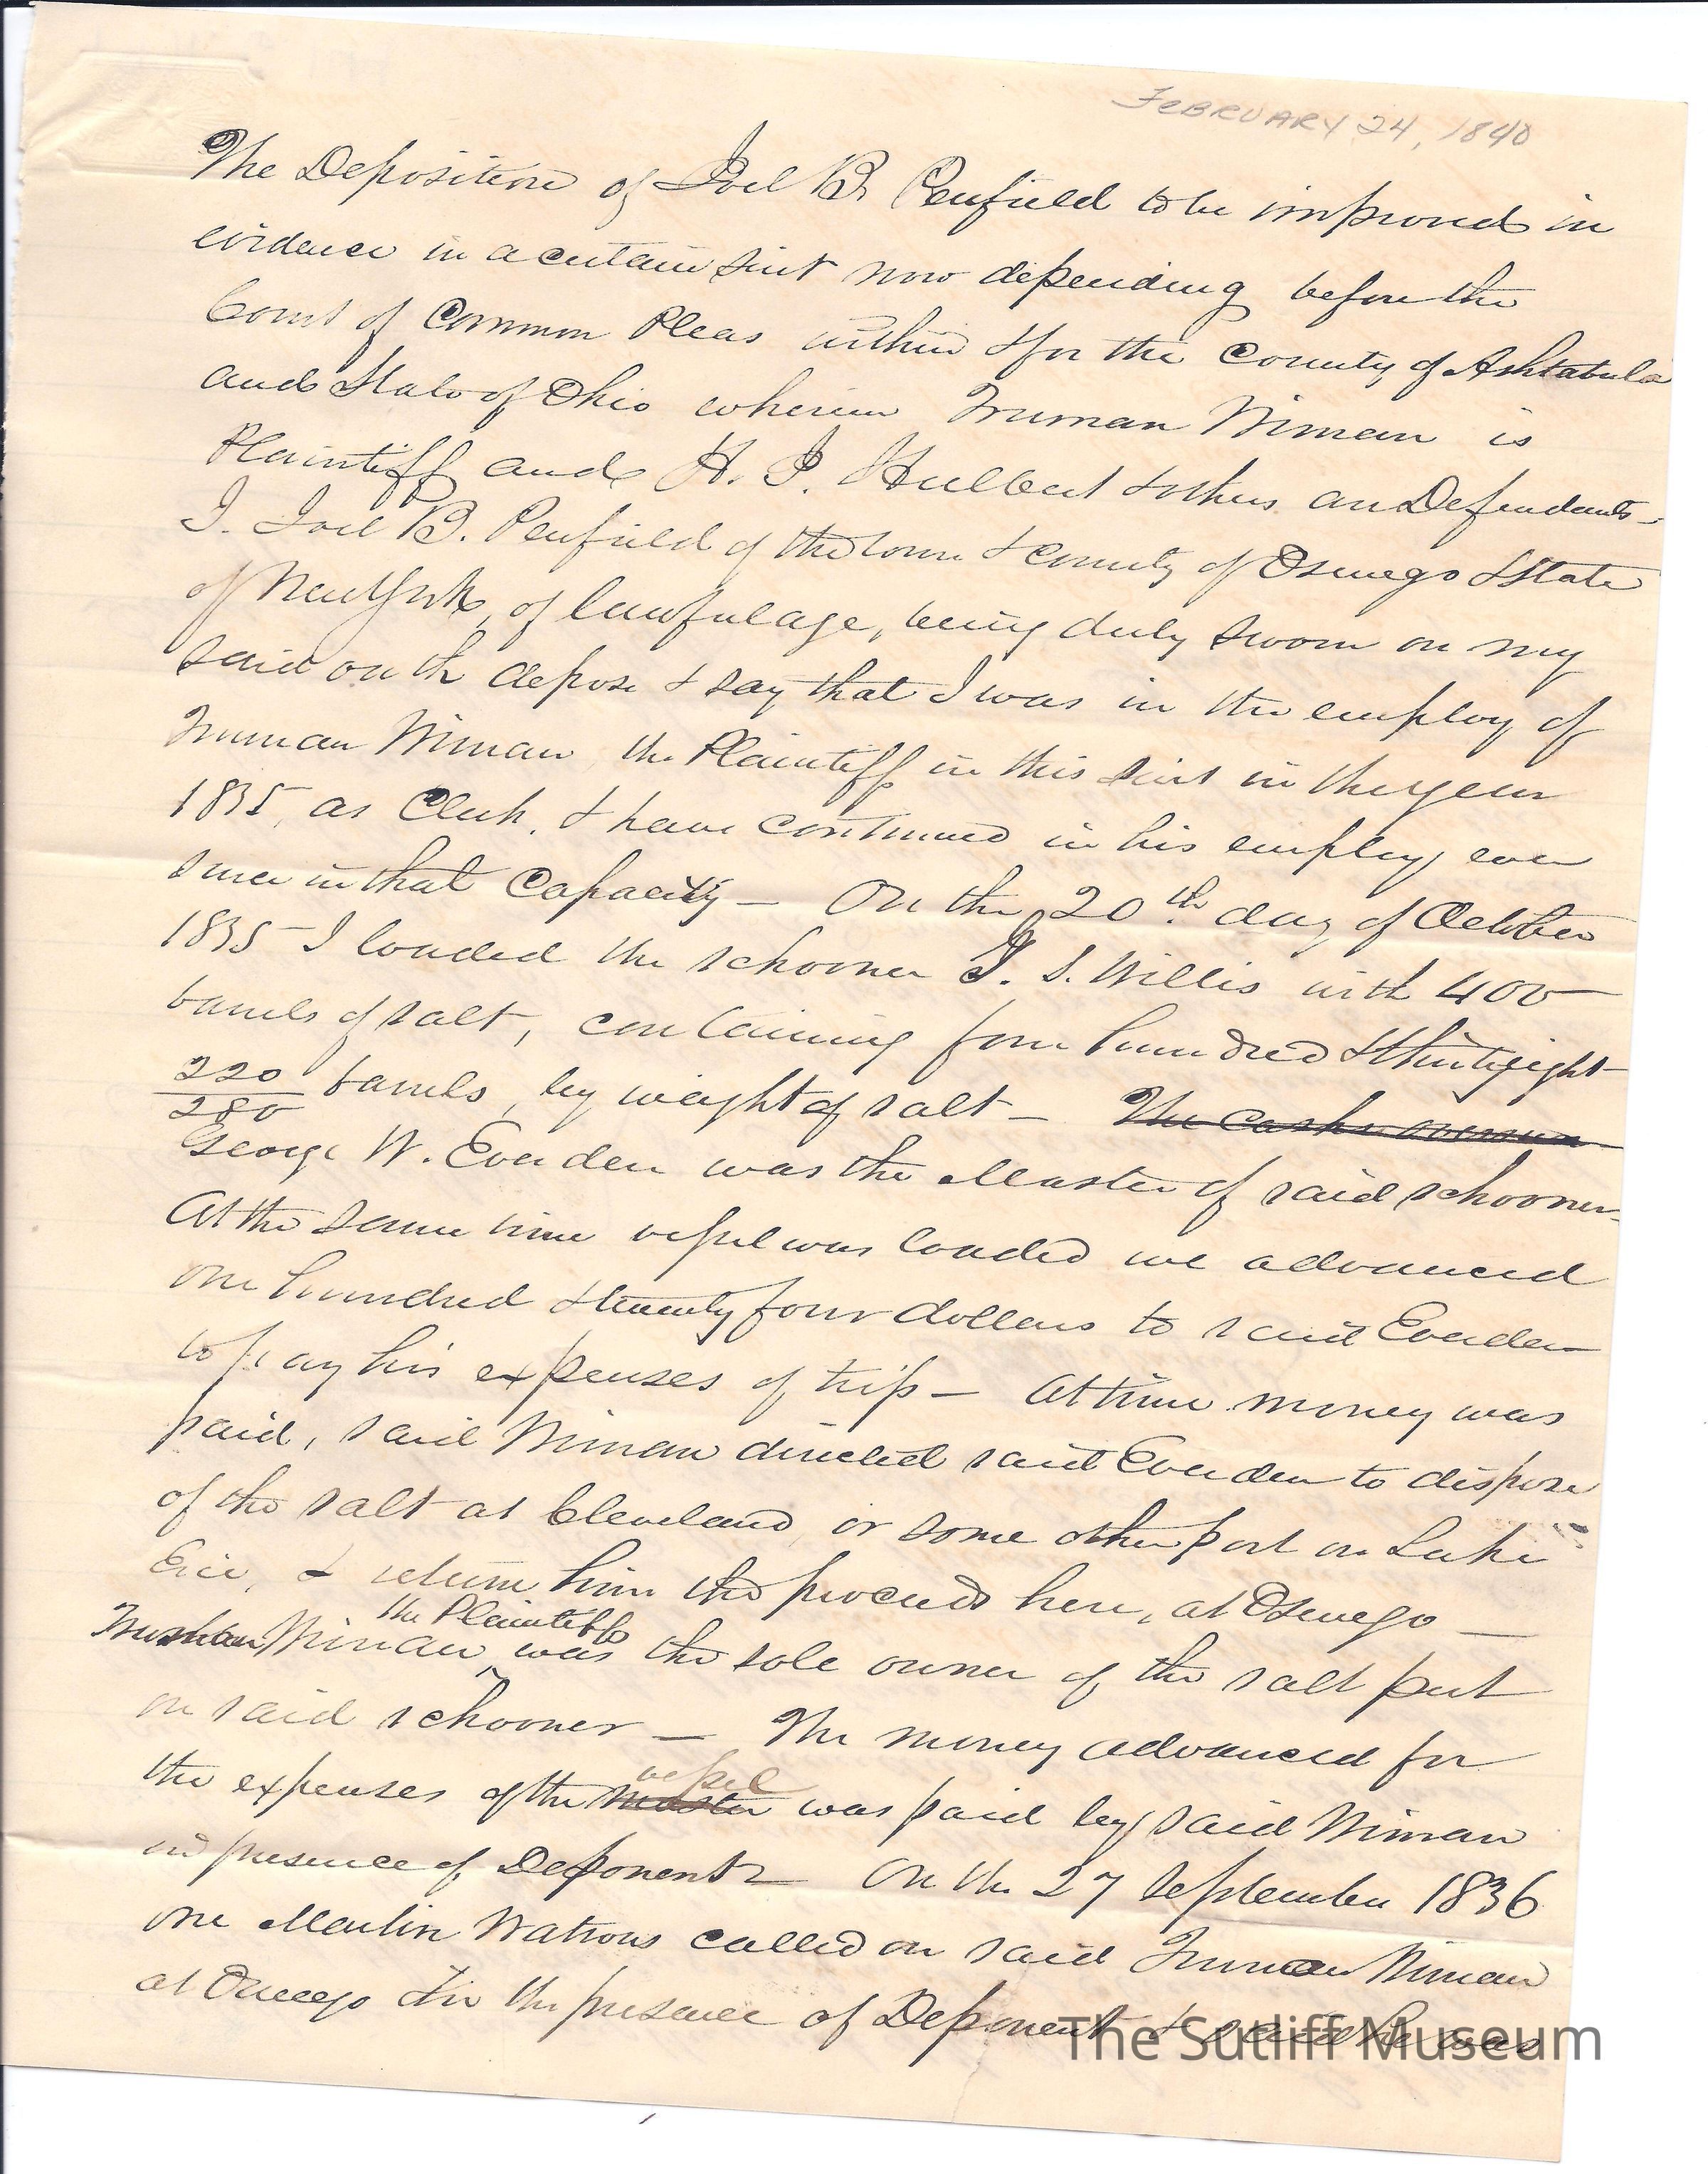 FEBRUARY 24, 1840
The Deposition of Joel B. Penfield to be improved in
evidence in a certain suit now depending before the
Court of Common Pleas within & for the County of Ashtabula
and State of Ohio wherein Truman Wiman is
Plaintiff and H. J. Hulbert & others are Defendants –
I. Joel B. Penfield of the town & county of Oswego & State
of New York, of lawful age, being duly sworn on my
said oath depose & say that I was in the employ of
Truman Wiman the Plaintiff in this suit in the year
1835, as Clerk, & have continued in his employ ever
since in that Capacity – On the 20th day of October
1835 – I loaded the schooner J. S. Willis with 400
barrels of salt, containing four hundred & thirty eight
220/280 barrels, by weight of salt – The casks overrun
George W. Evenden was the Master of said schooner –
At the same time vessel was loaded we advanced
one hundred & twenty four dollars to said Evenden
to pay his expenses of trip – At time money was
paid, said Wiman directed said Evenden to dispose
of the salt at Cleveland or some other port on Lake
Erie, & return him the proceeds here, at Oswego –
the Plaintiff
Truman Wiman was the sole owner of the salt put
on said schooner – The money advanced for
vessel
the expenses of the Master was paid by said Wiman
in presence of Deponent – On the 27 September 1836
one Martin Watrous called on said Truman Wiman
at Oswego & in the presence of Deponent & said he was
The Sutliff Museum